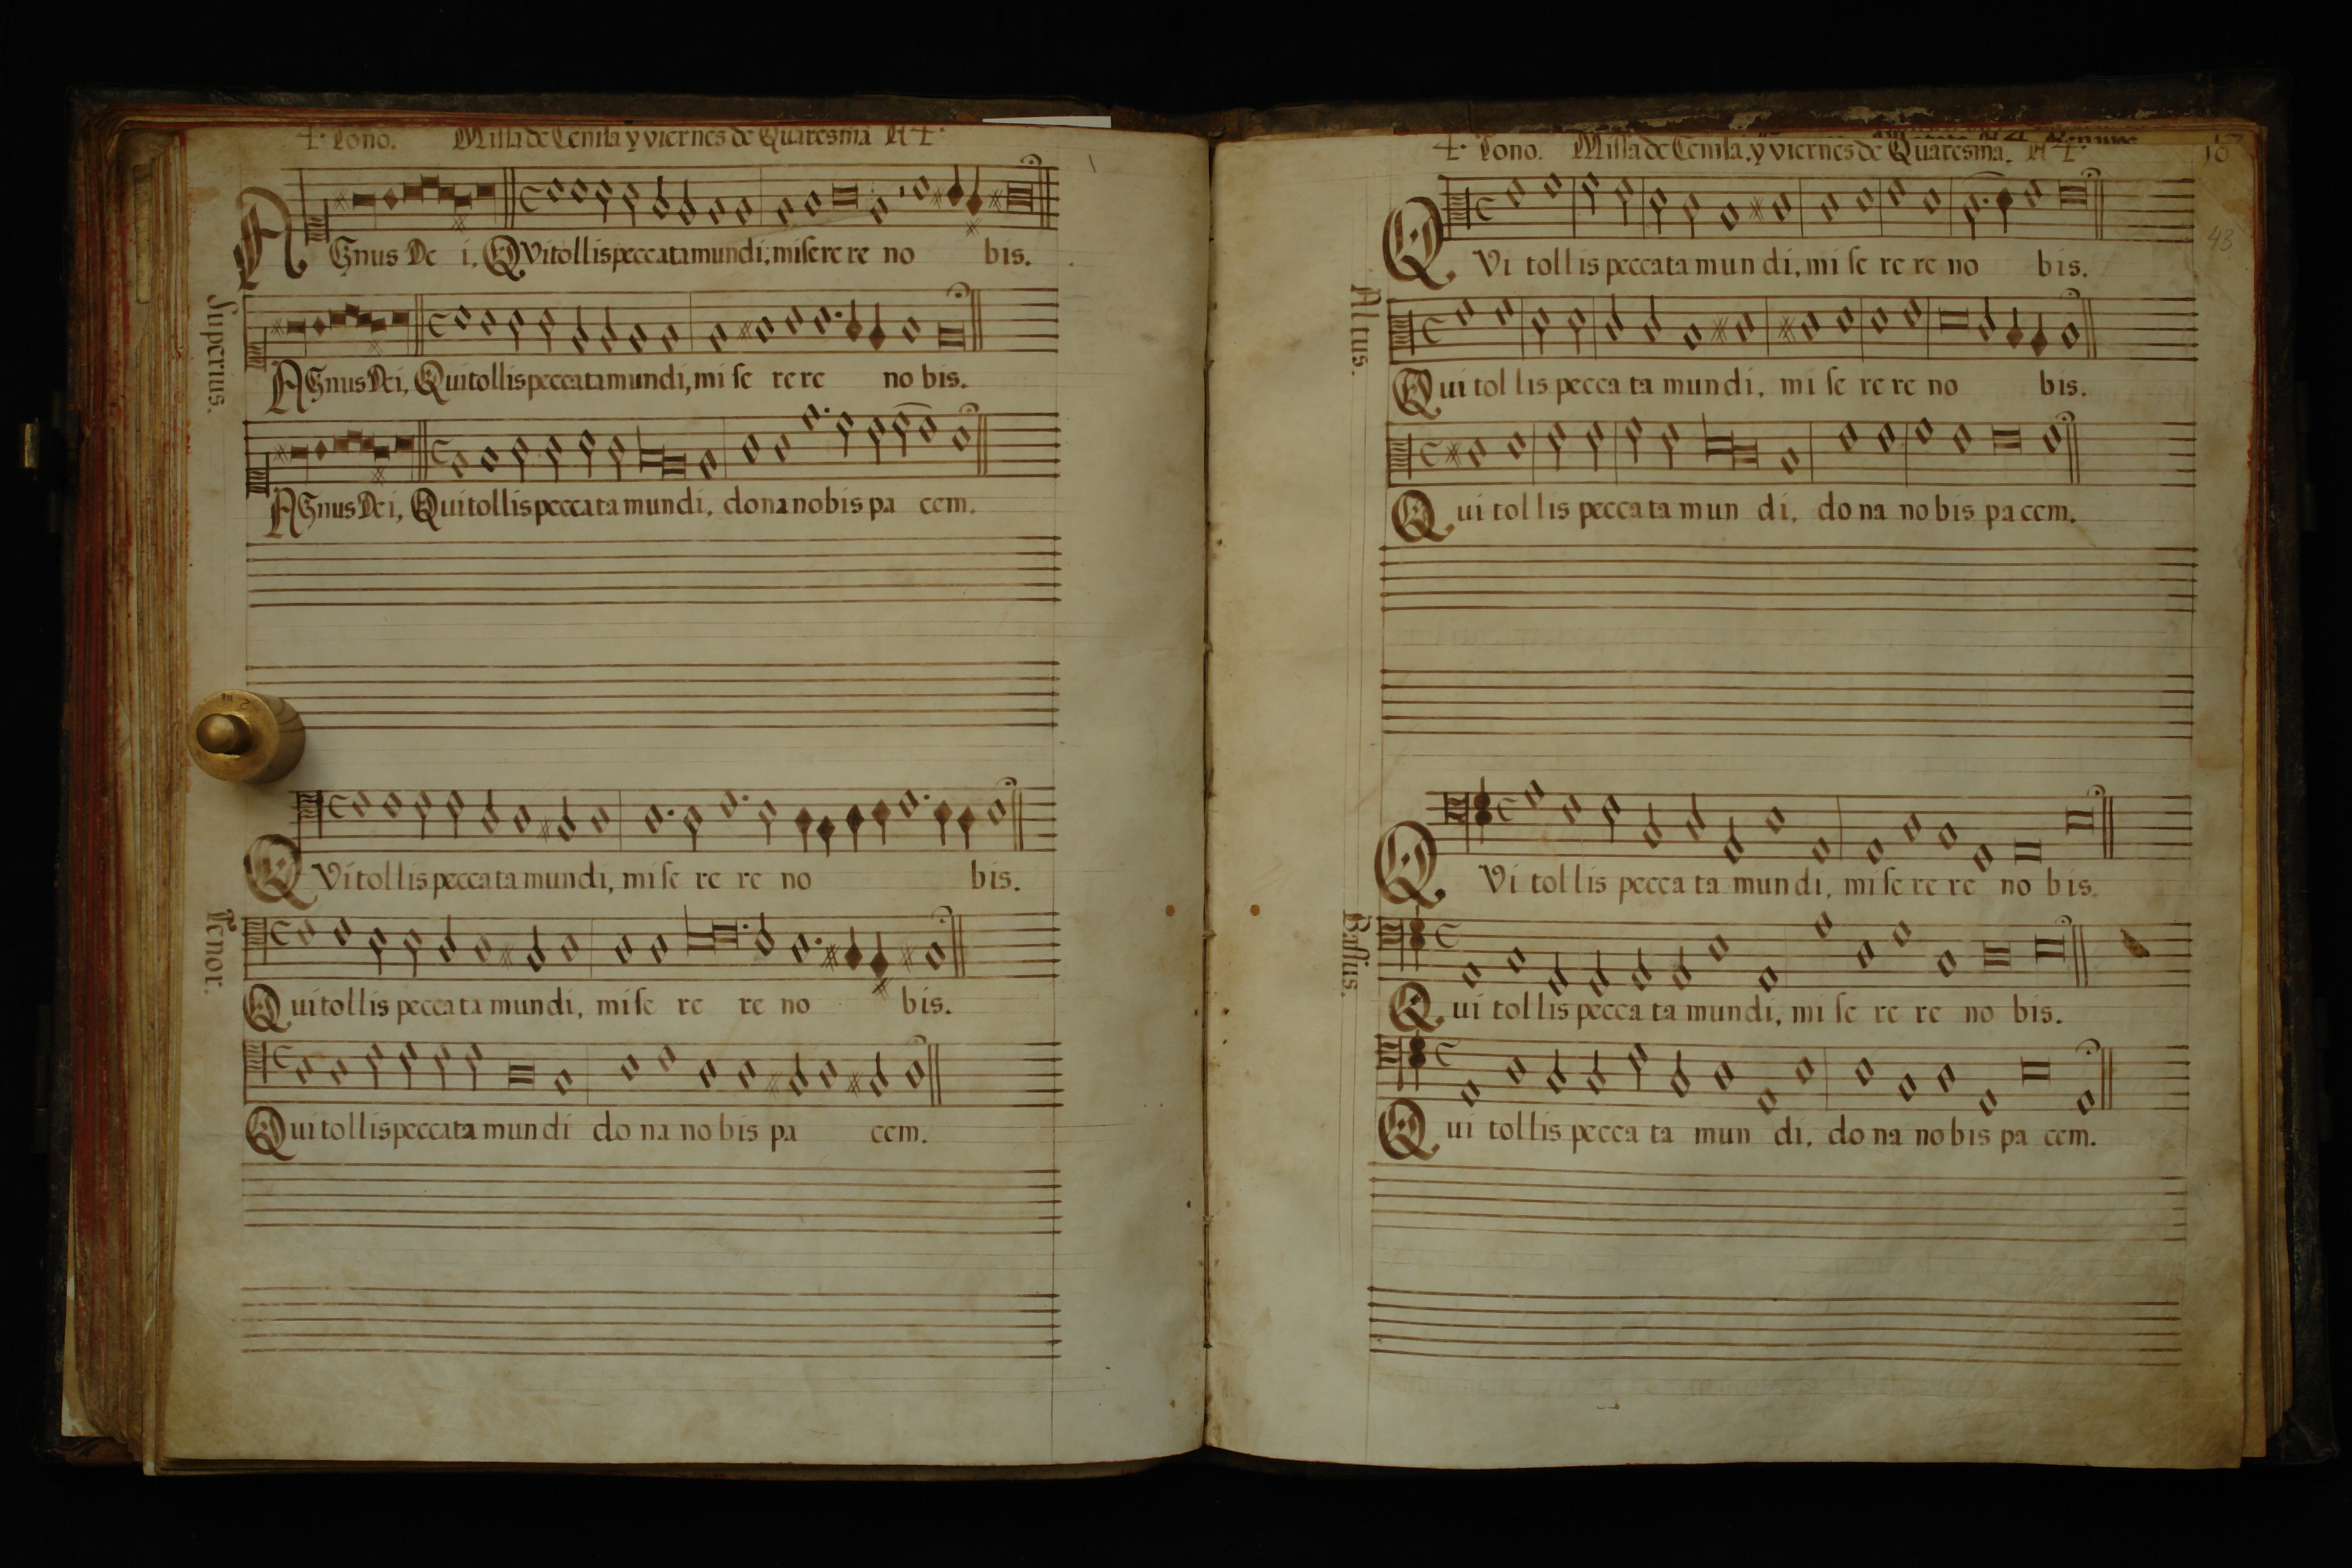 4. Tono. Missa de Cenisa y viernes de Quaresma A 4.
AGnus De i, QVi tollis peccata mundi, miserere re no bis.
Superius.
AGnus Dei, Qui tollis peccata mundi, mi se re re no bis.
AGnus Dei, Qui tollis peccata mundi, dona nobis pa cem.
QVi tollis peccata mundi, mise re re no bis.
Tenor.
Qui tollis peccata mundi, mise re re no bis.
Qui tollis peccata mundi do na no bis pa cem.
4. Tono. Missa de Cenisa, y viernes de Quaresma. A 4.
43
QVi tollis peccata mun di, mi se re re no bis.
Altus.
Qui tol lis pecca ta mundi, mi se re re no bis.
Qui tol lis pecca ta mun di, do na no bis pa cem.
QVi tol lis pecca ta mun di, mi se re re no bis.
Bassus.
Qui tol lis pecca ta mundi, mi se re re no bis.
Qui tollis pecca ta mun di, do na no bis pa cem.